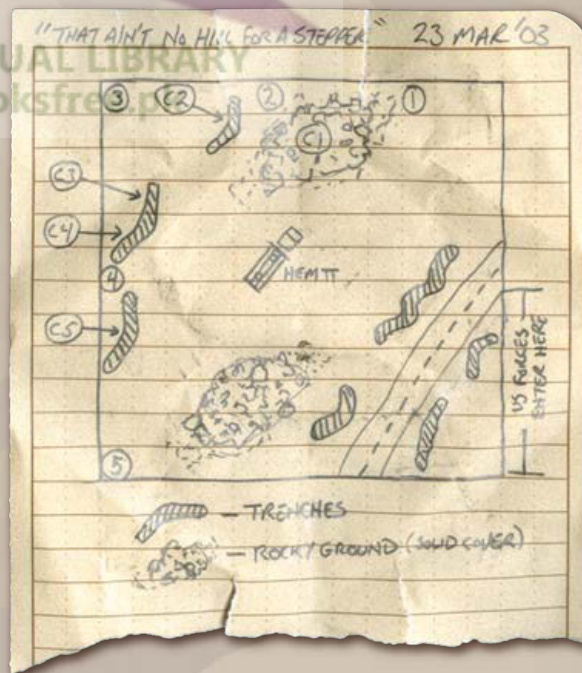 "THAT AIN'T NO HILL FOR A STEPPER" 23 MAR '03
UAL LIBRARY
oksfree.p
3 C2 2 1
C1
C3
C4
4
HEMTT
C5
US FORCES
ENTER HERE
5
— TRENCHES
— ROCKY GROUND (SOLID COVER)